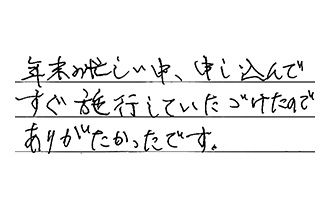 年末の忙しい中、申し込んで
すぐ施行していただけたので
ありがたかったです。